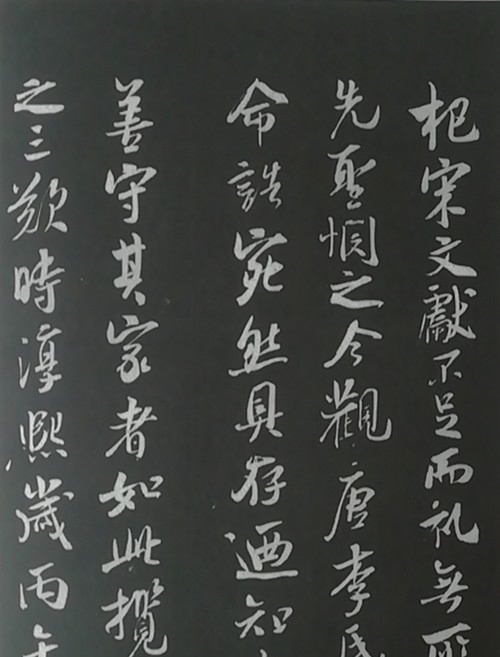 杞宋文獻不足而礼無所
先聖憫之今觀唐李氏
命誥宛然具存迺知
善守其家者如此攬
之三歎時淳熙歲丙午